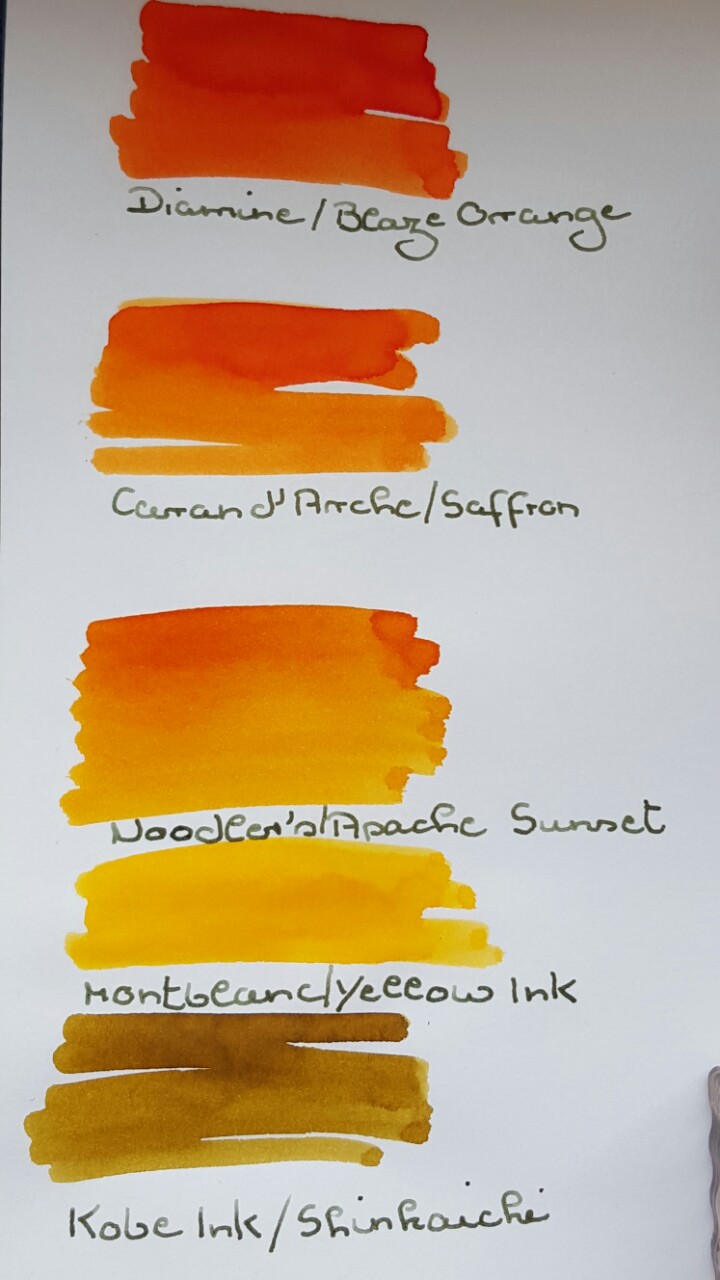 Diamine/Blaze Orrange
Caran d'Arche/Saffron
Noodler's/Apache Sunset
Montblanc/Yellow Ink
Kobe Ink/Shinkaichi